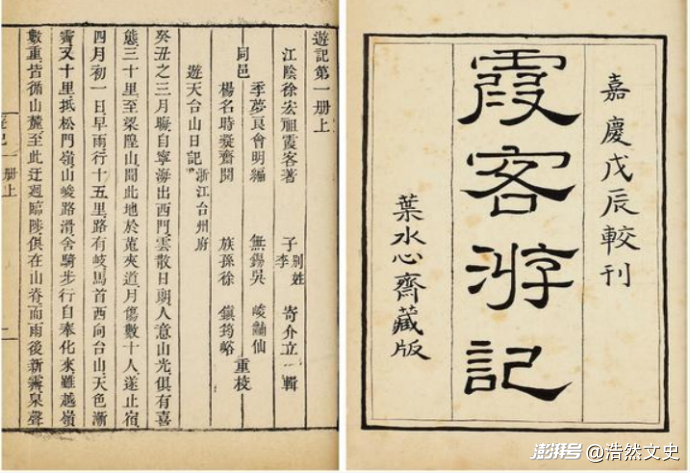 嘉慶戊辰較刊
霞客游記
葉水心齋藏版
遊記第一册上
江陰徐宏祖霞客著 子 別姓李 寄介立輯
季夢良會明編 無錫吳 峻
同邑 重校
楊名時凝齋閱 族孫徐 鎮筠峪
遊天台山日記 浙江台州府
癸丑之三月晦自寧海出西門雲散日朗人意山光俱有喜
態三十里至梁隍山聞此地於菟夾道月傷數十人遂止宿
四月初一日早雨行十五里路有岐馬首西向台山天色漸
霽又十里抵松門嶺山峻路滑舍騎步行自奉化來雖越嶺
數重皆循山麓至此迂迴臨陟俱在山脊而雨後新霽泉聲
一册上
澎湃号@浩然文史